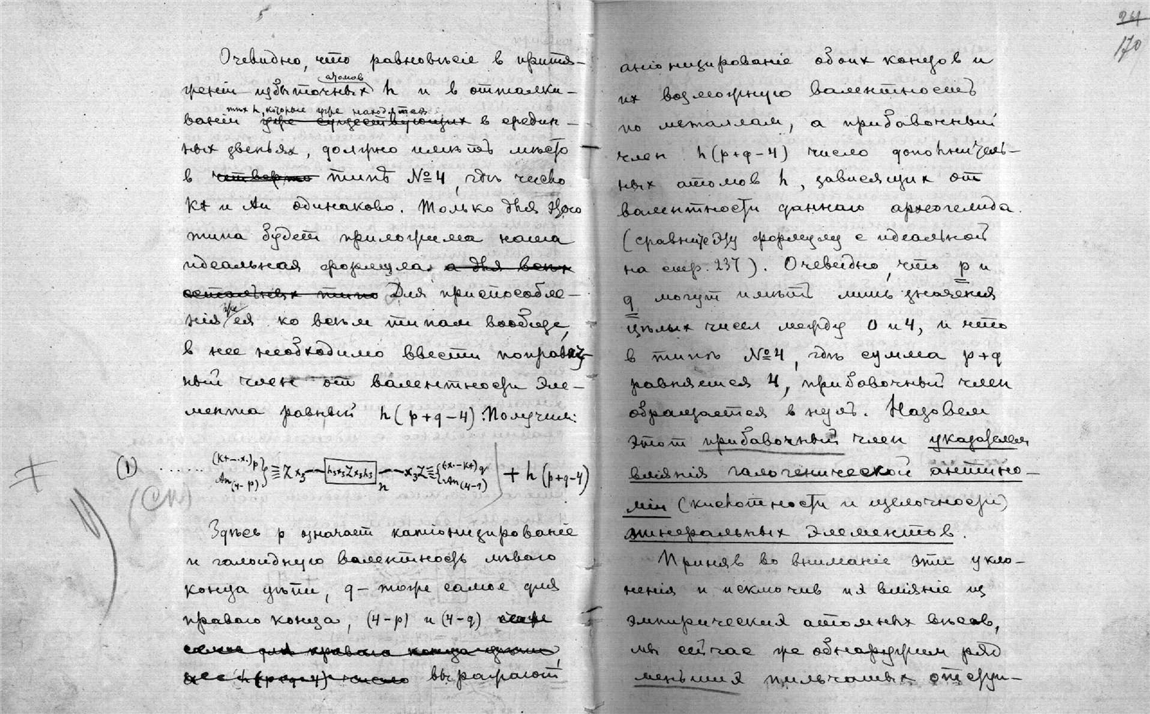 Очевидно, что равновѣсіе в притя-
женіи избыточных атомов h и в отталки-
ваніи тѣх h, которые уже находятся в средин-
ных звеньях, должно имѣть мѣсто
в типѣ №4, гдѣ число
Kt и An одинаково. Только для этого
типа будет приложима наша
идеальная формула, а для всѣх
остальных типов Для приспособле-
нія же ея ко всѣм типам вообще,
в нее необходимо ввести поправоч-
ный член от валентности эле-
мента равный h(p+q-4). Получим:
(1)
+ h (p+q-4)
Здѣсь p означает катіонизированіе
и галоидную валентность лѣваго
конца цѣпи, q - тоже самое для
праваго конца, (4-p) и (4-q) тоже
самое для праваго конца
выражают
24
170
аніонизированіе обоих концов и
их возможную валентность
по металлам, а прибавочный
член h(p+q-4) число дополнитель-
ных атомов h, зависящих от
валентности даннаго археогелида.
(сравните эту формулу с идеальной
на стр. 237). Очевидно, что p и
q могут имѣть лишь значения
цѣлых чисел между 0 и 4, и что
в типѣ №4, гдѣ сумма p+q
равняется 4, прибавочный член
обращается в нуль. Назовем
этот прибавочный член указателем
вліянія галогенической антино-
міи (кислотности и щелочности)
минеральных элементов.
Приняв во вниманіе эти укло-
ненія и исключив их вліяніе из
эмпирических атомных вѣсов,
мы сейчас же обнаружим ряд
меньших пильчатых отступ-